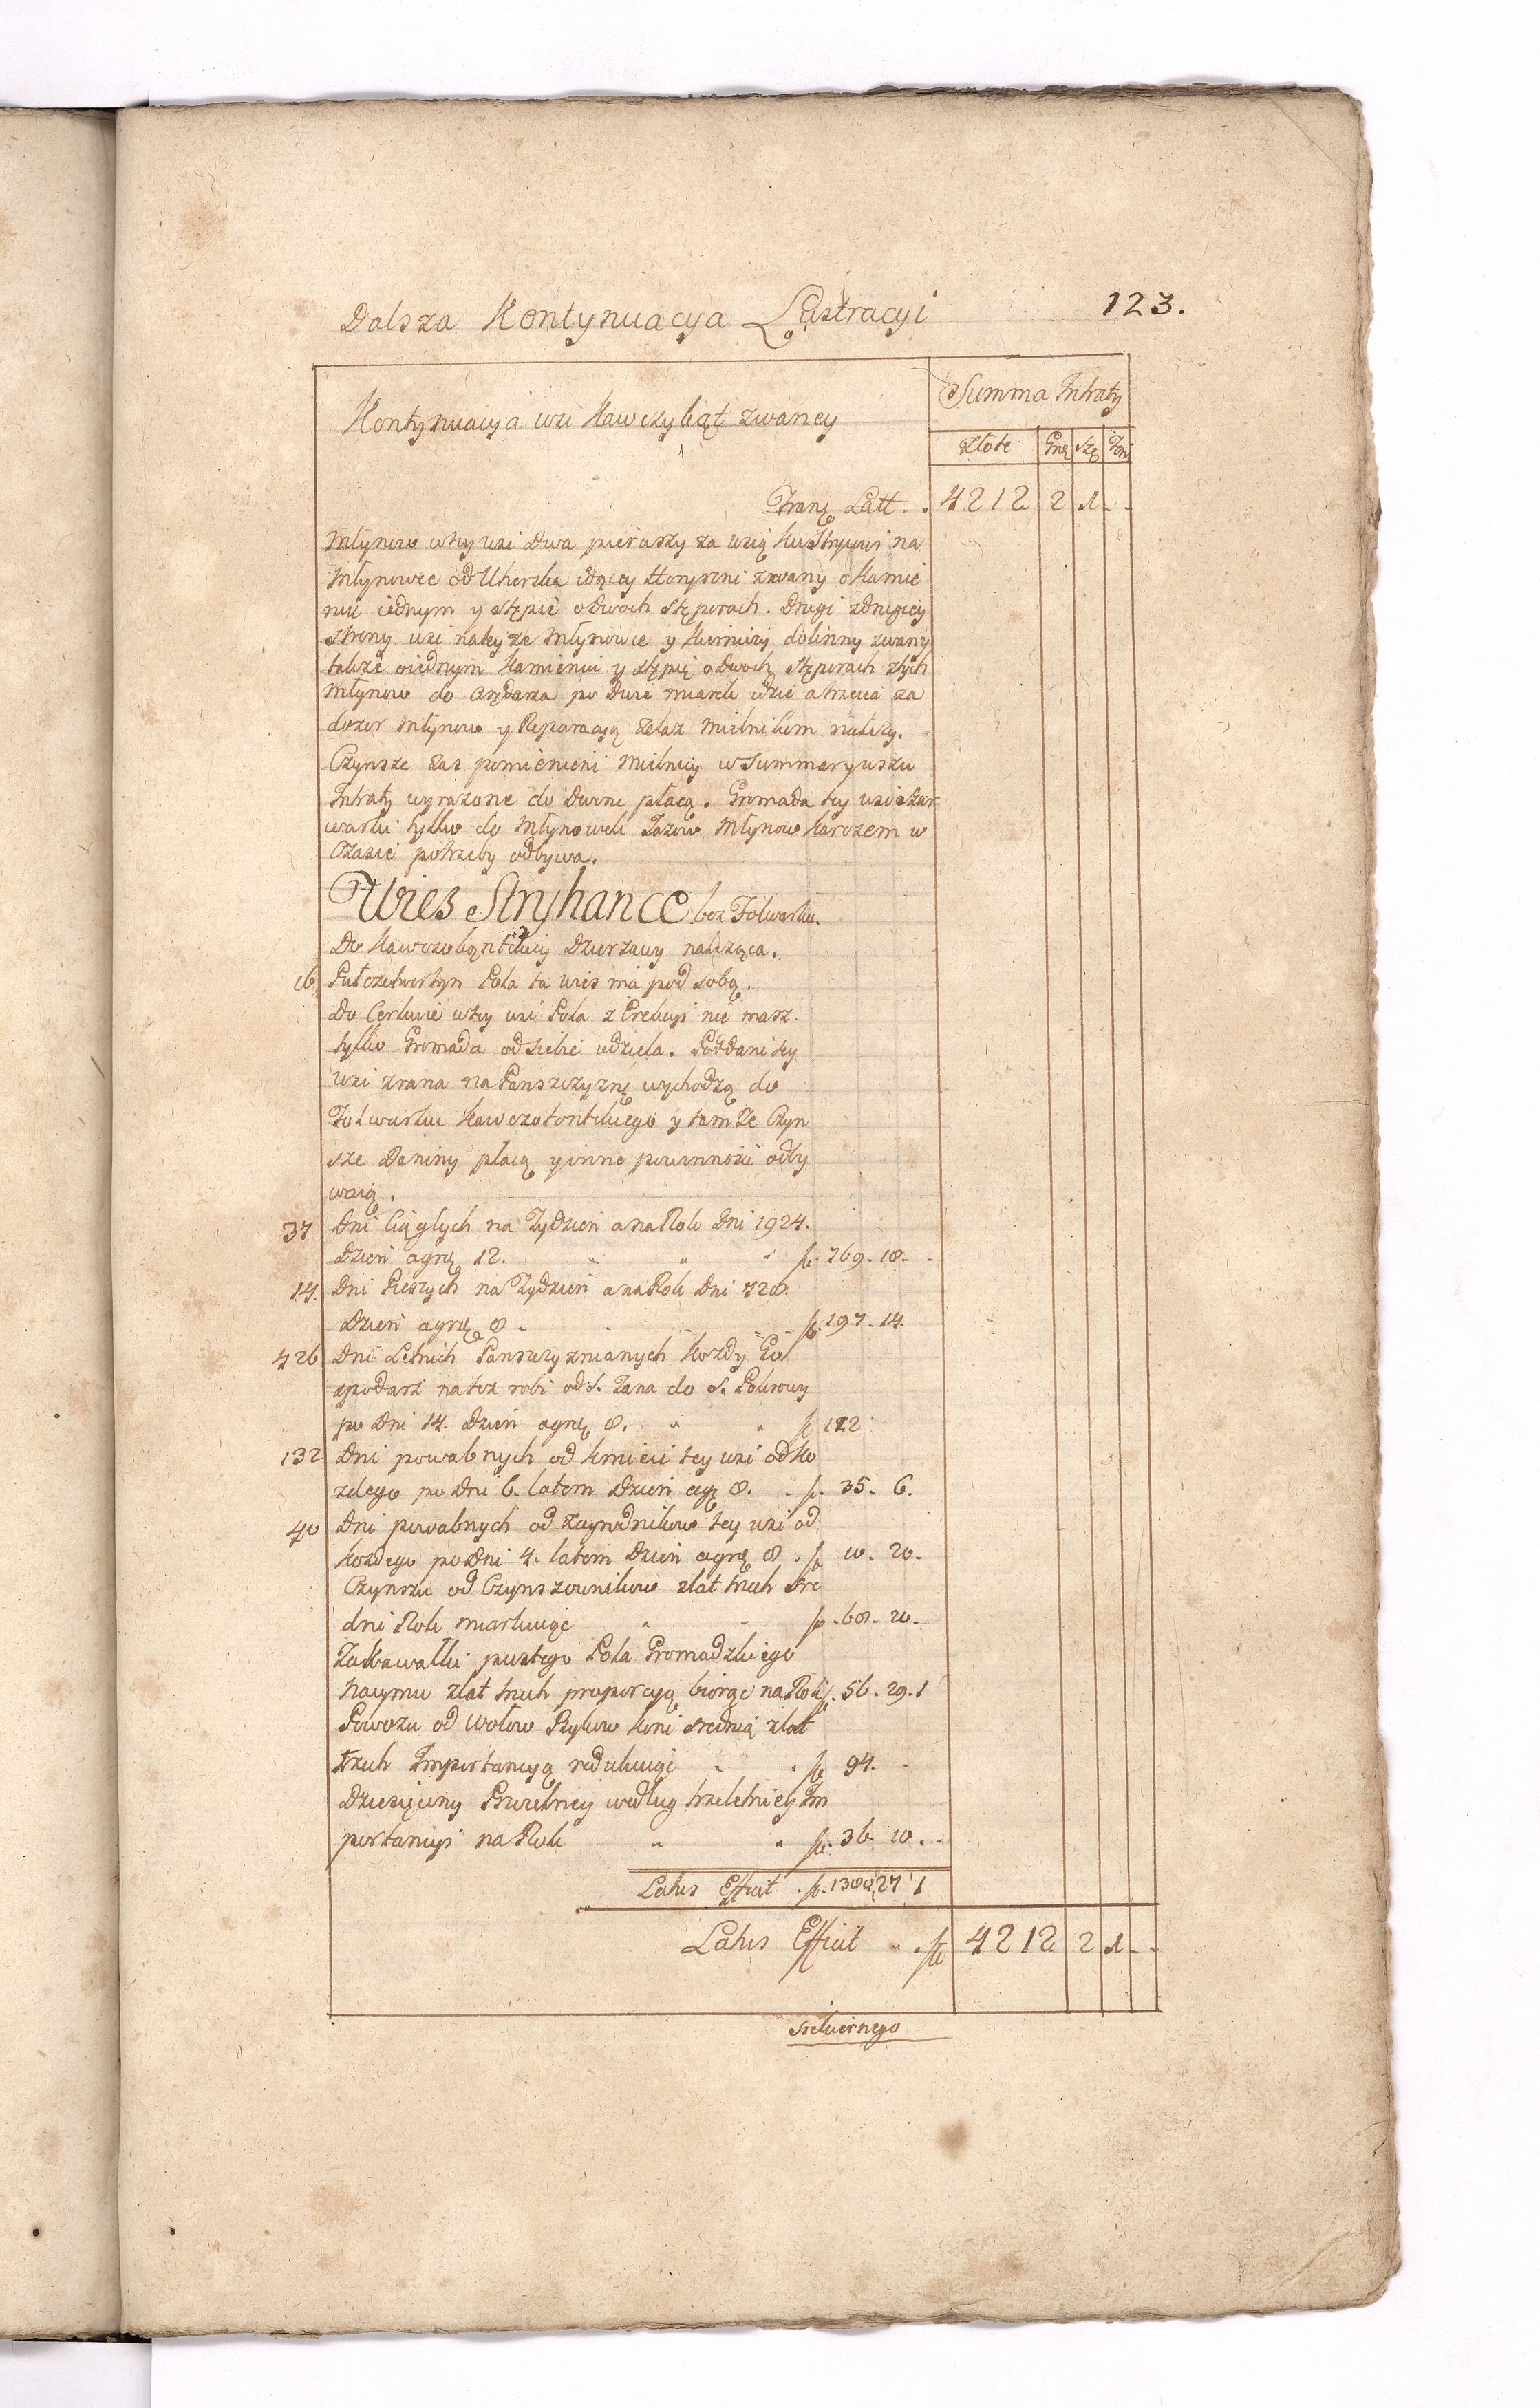 123.
Dalsza Kontynuacya Lustracyi
Kontynuacya wsi Kawczykąt zwaney
Summa Intraty
Złote Grę Szę
Tranę Latt . . 4212 2 1 - -
Młynow wtey wsi Dwa pierwszy za wsią ku Stryiowi na
Młynowce od Uherska idący Horyszni zwany o Kamie
niu iednym y stępie o Dwoch stęporach. Drugi zdrugiey
strony wsi na teyze Młynowce y Kiernicy dolinny zwany
także oiednym Kamieniu y stępię o Dwoch stęporach ztych
Młynow do Arędarza po Dwie miarki idzie a trzecia za
dozor Młynow y Reparacyą zelaz Mielnikom należy.
Czynsze zas pomienieni Mielnicy w Summaryuszu
Intraty wyrażone do Dworu płacą. Gromada tey wsi Szar
warki tylko do Młynowek Jazow Młynow Karczem w
Czasie potrzeby odbywa.
Wies Stryhance bez Folwarku.
Do Kawczokąntskiey Dzierzawy naleząca.
16 Pułczetwertyn Pola ta wies ma pod sobą.
Do Cerkwie wtey wsi Pola z Erekcyi nie masz
tylko Gromada od siebie udziela. Poddani tey
wsi zrana na Panszczyznę wychodzą do
Folwarku Kawczokontskiego y tam ze Czyn
sze Daniny płacą y inne powinności odby
waią.
37 Dni Ciągłych na Tydzien a na Rok Dni 1924.
Dzien agrę 12. " " " fl. 769. 18. .
14. Dni Pieszych na Tydzien a na Rok Dni 728.
Dzien agrę 8 - - - - fl. 197. 14.
426 Dni Letnich Panszczyznianych Kozdy Go
spodarz na to robi od S. Jana do S. Pokrowy
po Dni 14. Dzien agrę 8. " " fl 112
132 Dni powabnych od Kmieci tey wsi od Ko
zdego po Dni 6. latem Dzien agrę 8. . fl. 35. 6.
40 Dni powabnych od Zagrodnikow tey wsi od
Kozdego po Dni 4. latem Dzien agrę 8 . fl 10. 20.
Czynszu od Czynszownikow zlat trzech sre
dni Rok miarkuiąc " " fl. 68. 20.
pustego Pola Gromadzkiego
Naymu zlat trzech proporcyą biorąc na Rok fl. 56. 29. 1
Powozu od Wołow Bykow Koni srednią zlat
trzech Importancyą redukuiąc . . fl 94. .
Dziesięciny Pszczelney według trzeletniey Im
portancyi na Rok " " fl. 36. 10. .
Latus Efficit . fl. 27 1
Latus Efficit . . fl 4212 2 1 - -